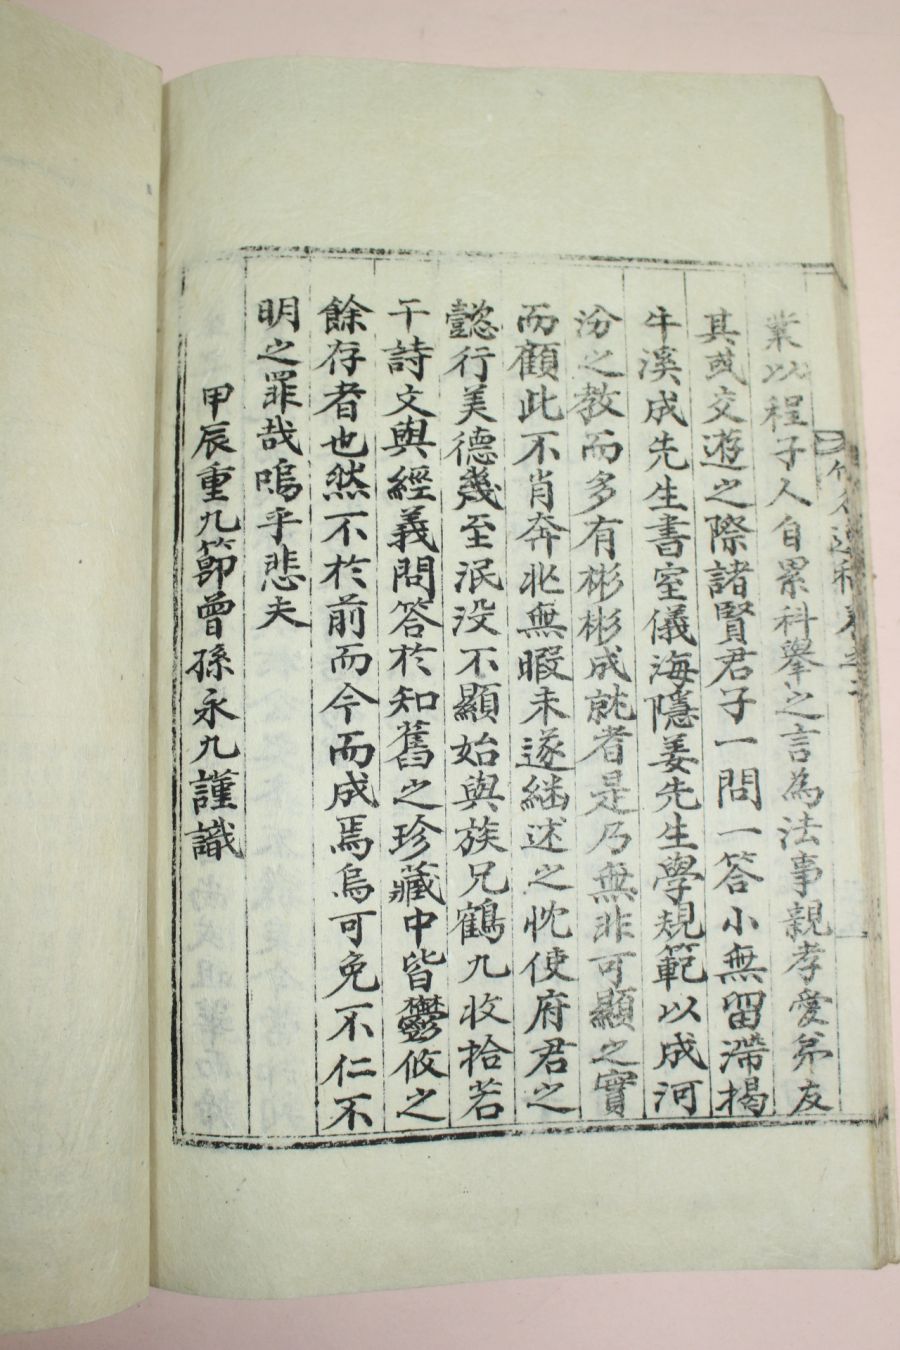 業以程子人自累科擧之言為法事親孝愛弟友
其或交遊之際諸賢君子一問一答小無留滯揭
牛溪成先生書室儀海隱姜先生學規範以成河
汾之教而多有彬彬成就者是乃無非可顯之實
而顧此不肖奔北無暇未遂継述之忱使府君之
懿行美德幾至泯没不顯始與族兄鶴九收拾若
干詩文與經義問答於知舊之珍藏中皆鬱攸之
餘存者也然不於前而今而成焉烏可免不仁不
明之罪哉嗚乎悲夫
甲辰重九節曾孫永九謹識